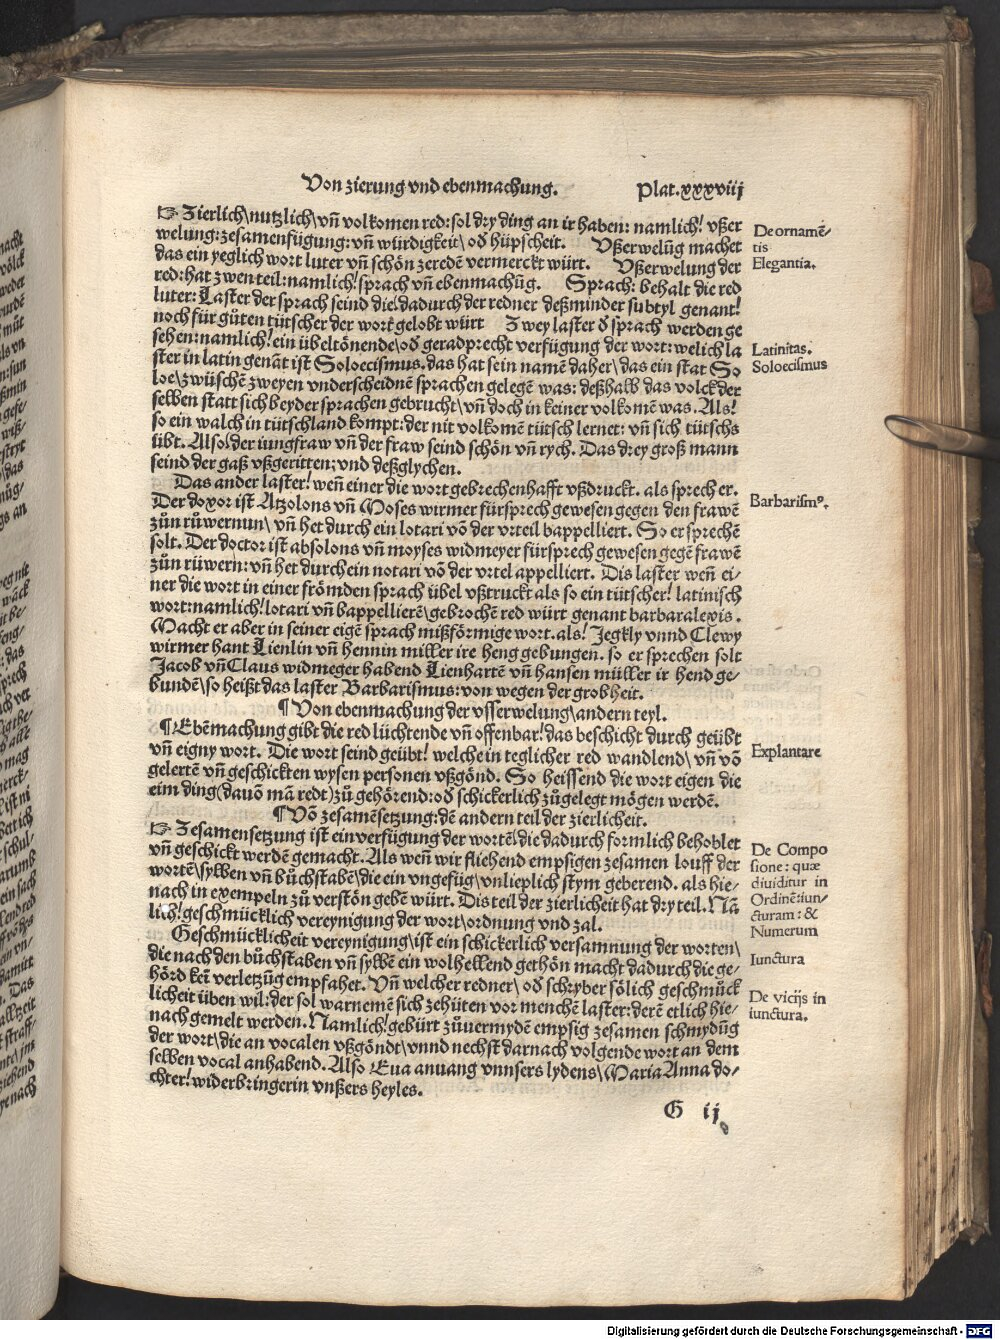 Von zierung vnd ebenmachung.
Plat.xxxviij
☞ Zierlich\nutzlich\vñ volkomen red: sol dry ding an ir haben: namlich! vßer
welung: zesamenfügung: vñ würdigkeit\ od hüpscheit. Vßerwelũg machet
das ein yeglich wort luter vñ schön zeredẽ vermerckt würt. Vßerwelung der
red: hat zwen teil: namlich! sprach vñ ebenmachũg. Sprach: behalt die red
luter: Laster der sprach seind die\ dadurch der redner deßminder subtyl genant!
noch für gůten tütscher der wort gelobt würt Zwey laster d̕ sprach werden ge
sehen: namlich! ein übeltönende\od geradprecht verfügung der wort: welich la
ster in latin genãt ist Soloecismus. das hat sein namẽ daher\ das ein stat So
loe\zwüschẽ zweyen vnderscheidnẽ sprachen gelegẽ was: deßhalb das volck der
selben statt sich beyder sprachen gebrucht\ vñ doch in keiner volkomẽ was. Als!
so ein walch in tütschland kompt: der nit volkomẽ tütsch lernet: vñ sich tütschs
übt. Also! der iungfraw vñ der fraw seind schön vñ rych. Das drey groß mann
seind der gaß vßgeritten: vnd deßglychen.
Das ander laster! weñ einer die wort gebrechenhafft vßdruckt. als sprech er.
Der doxor ist Atzolons vñ Moses wirmer fürsprech gewesen gegen den frawẽ
zůn rüwernun\ vñ het durch ein lotari võ der vrteil bappelliert. So er sprechẽ
solt. Der doctor ist absolons vñ moyses widmeyer fürsprech gewesen gegẽ frawẽ
zůn rüwern: vñ het durch ein notari võ der vrtel appelliert. Dis laster weñ ei-
ner die wort in einer frömden sprach übel vßtruckt als so ein tütscher! latinisch
wort: namlich! lotari vñ bappellierẽ\gebrochẽ red würt genant barbaralexis.
Macht er aber in seiner eigẽ sprach mißförmige wort. als! Jegkly vnnd Clewy
wirmer hant Lienlin vñ hennin miller ire heng gebungen. so er sprechen solt
Jacob vñ Claus widmeger habend Lienhartẽ vñ hansen müller ir hend ge-
bundẽ\so heißt das laster Barbarismus: von wegen der grobheit.
¶ Von ebenmachung der vsserwelung\andern teyl.
¶ Ebẽmachung gibt die red lüchtende vñ offenbar! das beschicht durch geübt
vñ eigny wort. Die wort seind geübt! welche in teglicher red wandlend\ vñ võ
gelertẽ vñ geschickten wysen personen vßgönd. So heissend die wort eigen die
eim ding (dauõ mã redt) zů gehörend: od schickerlich zůgelegt mögen werdẽ.
¶ Võ zesamẽsetzung: dẽ andern teil der zierlicheit.
☞ Zesamensetzung ist ein verfügung der wortẽ\die dadurch formlich behoblet
vñ geschickt werdẽ gemacht. Als weñ wir fliehend empsigen zesamen louff der
wortẽ\sylben vñ bůchstabẽ\die ein vngefüg\vnlieplich stym geberend. als hie-
nach in exempeln zů verstõn gebẽ würt. Dis teil der zierlicheit hat dry teil. Nã
lich! geschmücklich vereynigung der wort\ordnung vnd zal.
Geschmücklicheit vereynigung\ist ein schickerlich versamnung der worten\
die nach den bůchstaben vñ sylbẽ ein wolhellend gethön macht dadurch die ge-
hörd kei͂ verletzũg empfahet. Vñ welcher redner\ od schryber sölich geschmück
licheit üben wil: der sol warnemẽ sich zehüten vor menchẽ laster: derẽ etlich hie-
nach gemelt werden. Namlich! gebürt zůuermydẽ empsig zesamen schmydũg
der wort\die an vocalen vßgõndt\vnnd nechst darnach volgende wort an dem
selben vocal anhabend. Also Eua anuang vnnsers lydens\Maria Anna do-
chter! widerbringerin vnßers heyles.
G ij
De ornamẽ-
tis
Elegantia.
Latinitas.
Soloecismus
Barbarismꝰ.
Explantare
De Compo
sione: quæ
diuiditur in
Ordinẽ: iun-
cturam: &
Numerum
Iunctura
De vicijs in
iunctura.
Digitalisierung gefördert durch die Deutsche Forschungsgemeinschaft - DFG